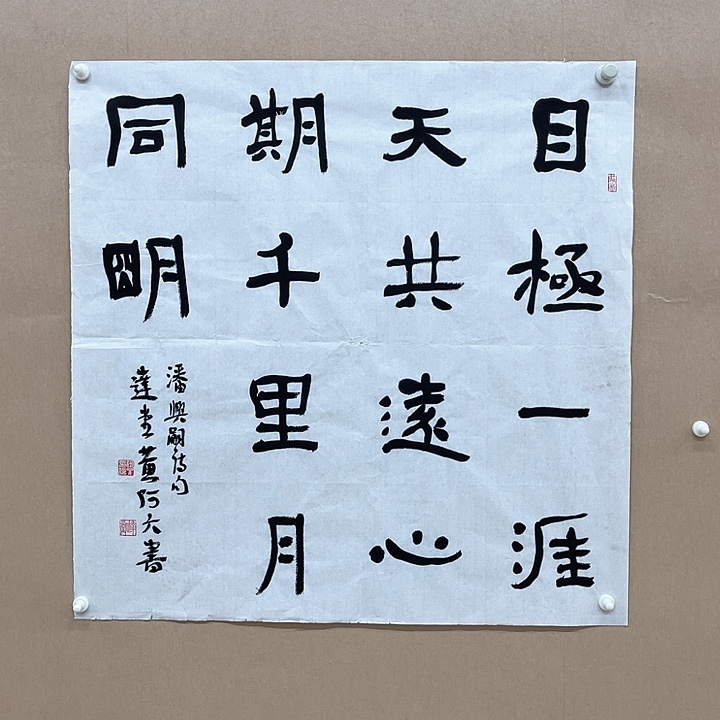 目極一涯
天共遠心
期千里月
同明
潘興嗣詩句
達堂黃阿六書